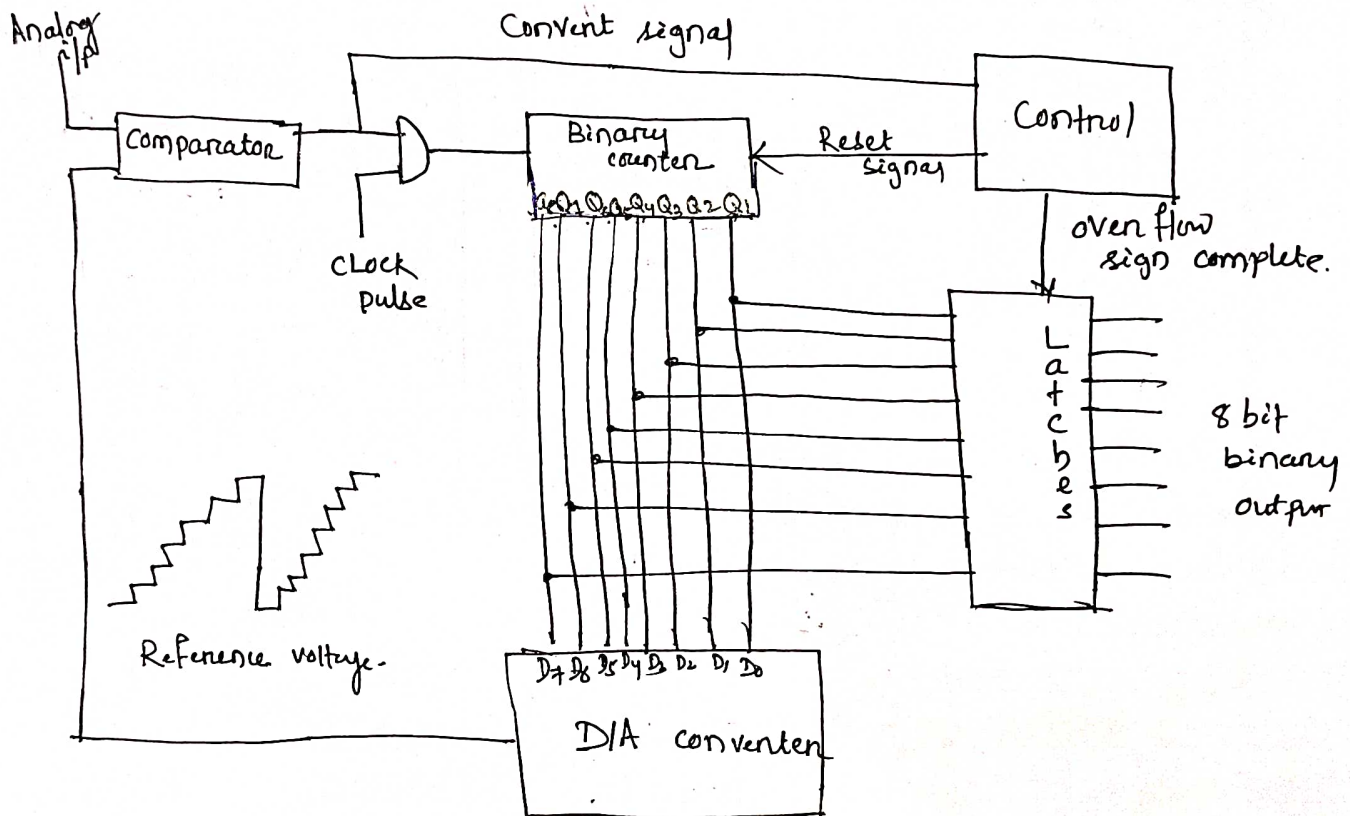 Analog
i/p
Convent signal
Comparator
Binary
counter
Reset
signal
Control
Q7 Q6 Q5 Q4 Q3 Q2 Q1
clock
pulse
over flow
sign complete.
Latches
8 bit
binary
Reference voltage.
D7 D6 D5 D4 D3 D2 D1 D0
D/A conventer